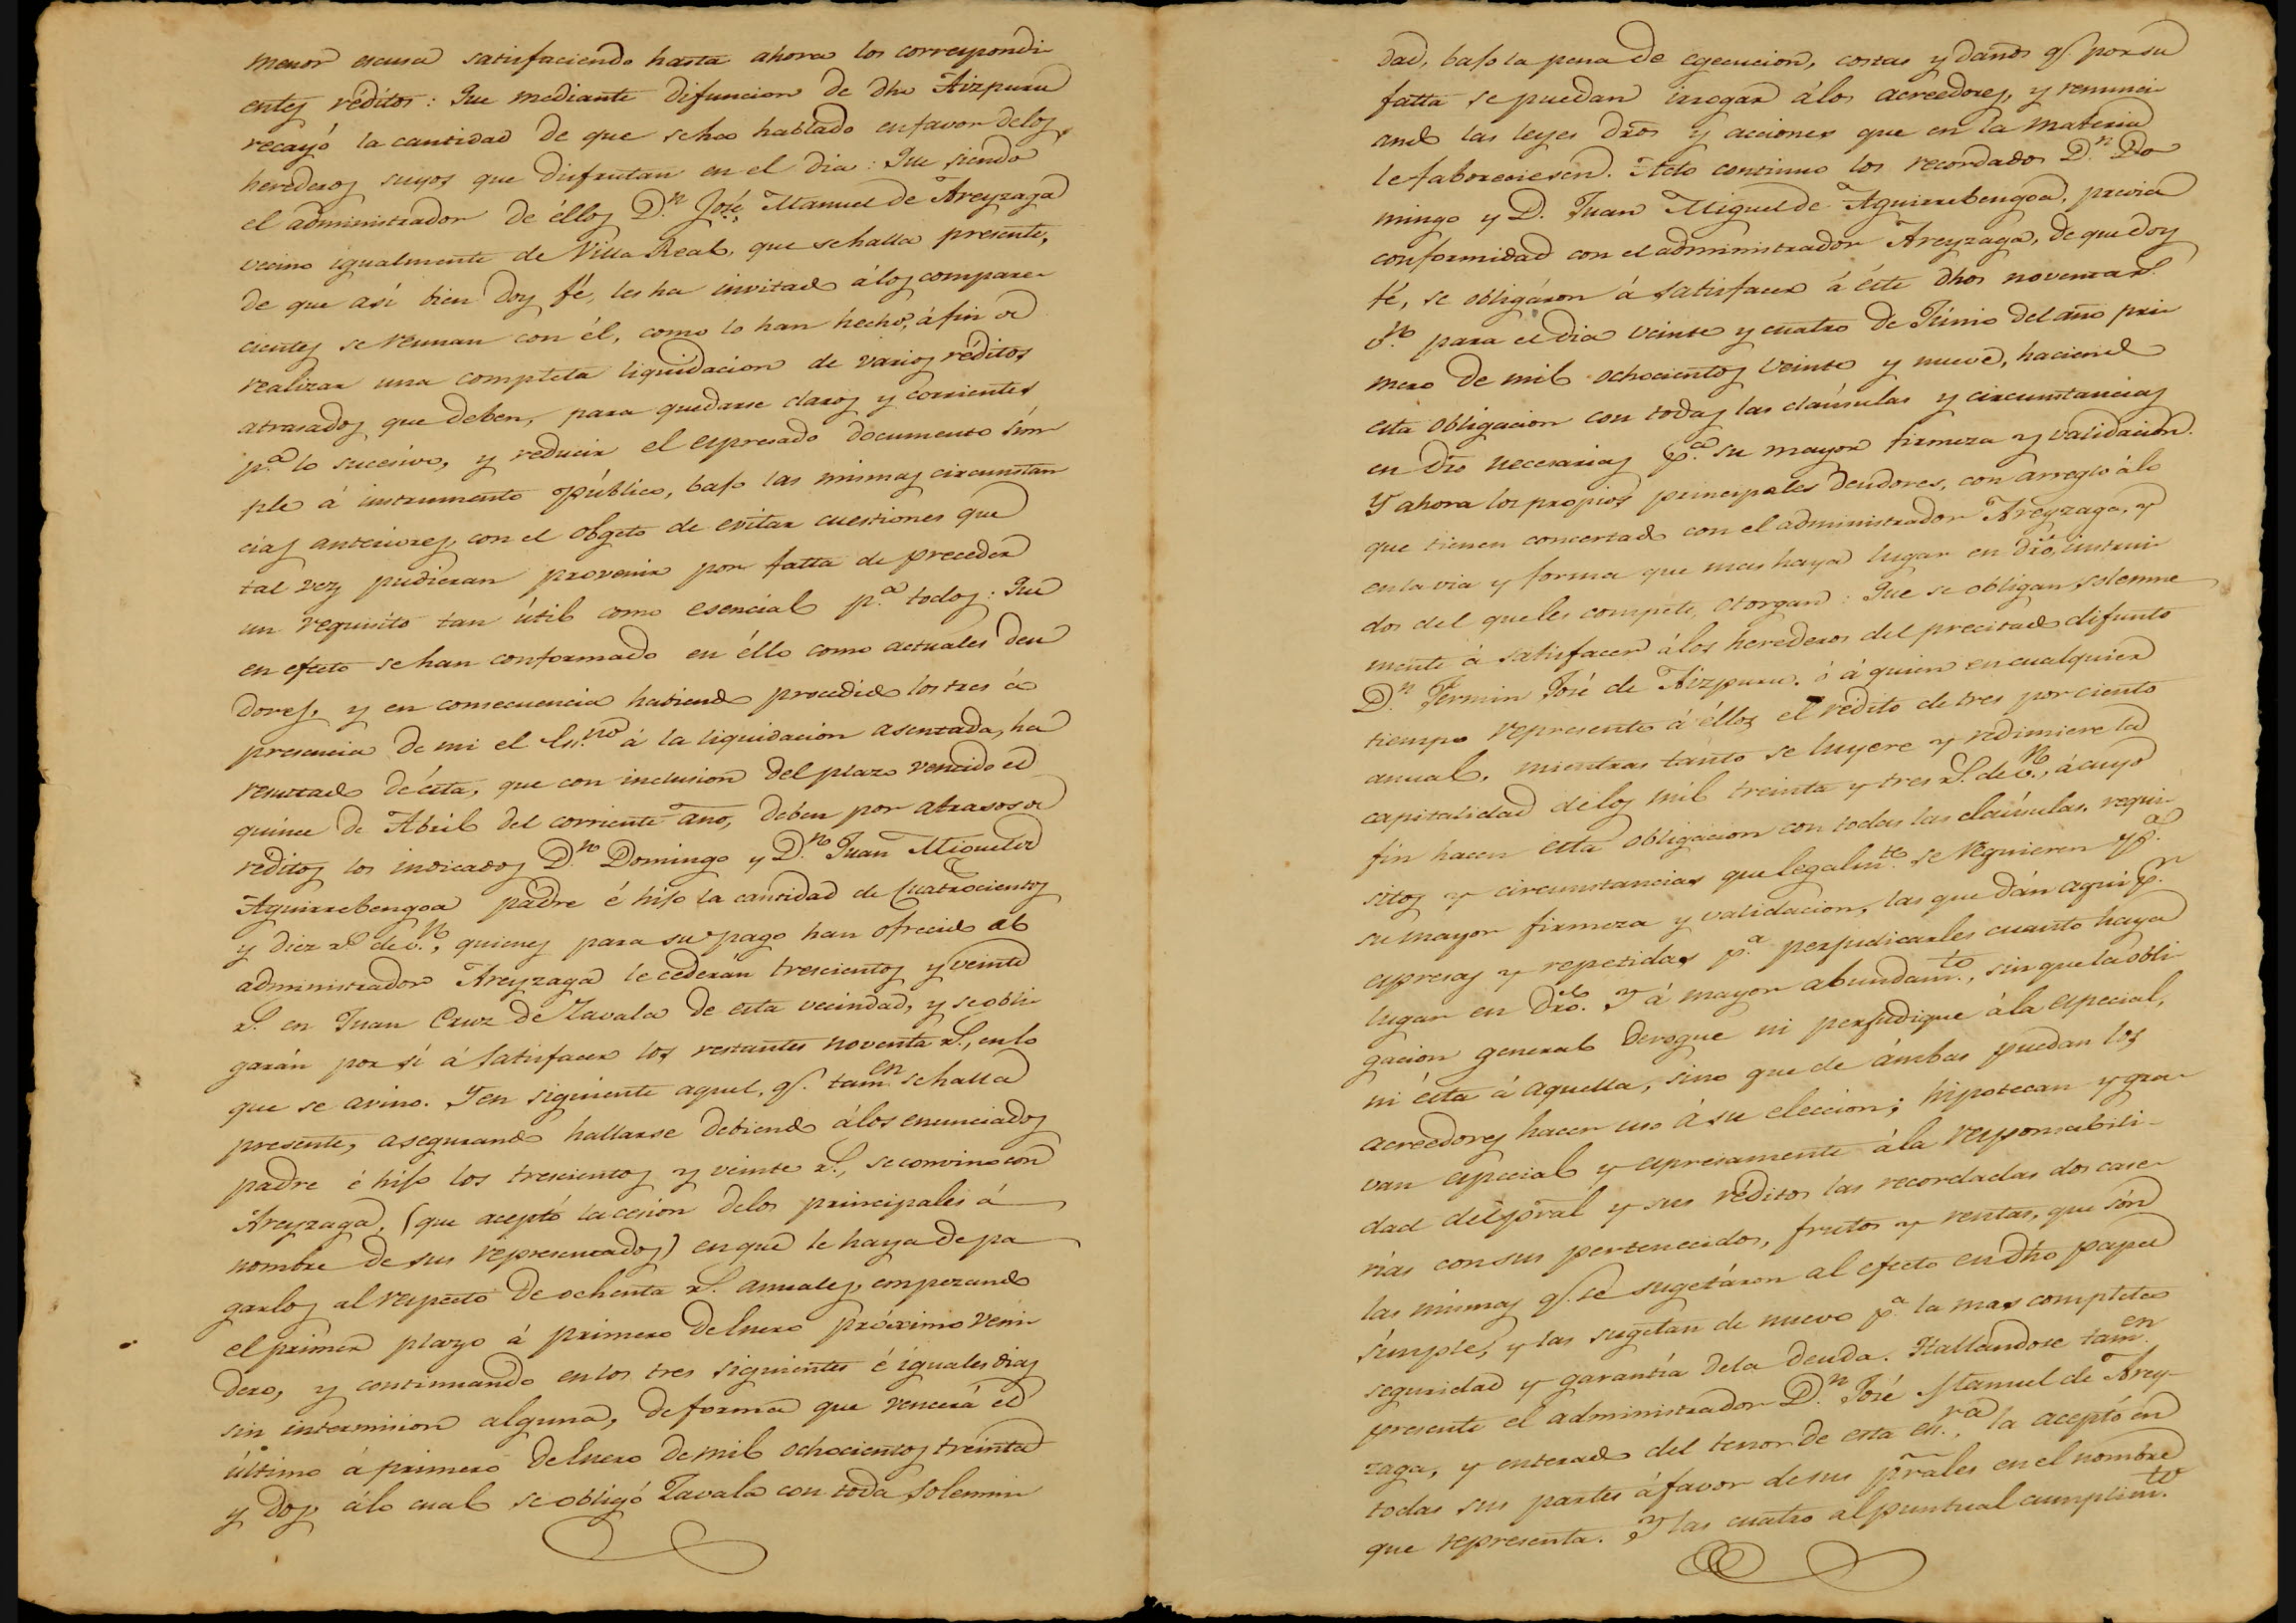 menor escusa satisfaciendo hasta ahora los correspondi-
entes réditos: Que mediante difuncion de dho Aizpuru
recayó la cantidad de que se ha hablado en favor de los
herederos suyos que disfrutan en el dia: Que siendo
el administrador de éllos D.n José Manuel de Areyzaga
vecino igualmente de Villa Real, que se halla presente,
de que así bien doy fé, les ha invitado á los compare-
cientes se reunan con él, como lo han hecho, á fin de
realizar una completa liquidacion de varios réditos
atrasados que deben, para quedarse claros y corrientes
p.a lo sucesivo, y reducir el espresado documento sim-
ple á instrumento público, bajo las mismas circunstan
cias anteriores, con el obgeto de evitar cuestiones que
tal vez pudieran provenir por falta de preceder
un requisito tan útil como esencial p.a todos: Que
en efecto se han conformado en éllo como actuales deu
dores, y en consecuencia habiendo procedido los tres á
presencia de mi el Es.no á la liquidacion asentada, ha
resultado de ésta, que con inclusion del plazo vencido el
quince de Abril del corriente año, deben por atrasos de
reditos los indicados D.n Domingo y D.n Juan Miguel de
Aguirrebengoa padre é hijo la cantidad de Cuatrocientos
y diez r.s de v.n, quienes para su pago han ofrecido al
administrador Areyzaga le cederán trescientos y veinte
r.s en Juan Cruz de Zavala de esta vecindad, y se obli-
garán por sí á satisfacer los restantes noventa r.s, en lo
que se avino. Y en siguiente aquel, q.e tam.en se halla
presente, asegurando hallarse debiendo á los enunciados
padre é hijo los trescientos y veinte r.s, se convino con
Areyzaga, (que aceptó la cesion de los principales á
nombre de sus representados) en que le haya de pa
garlos al respecto de ochenta r.s anuales, empezando
el primer plazo á primero de Enero próximo veni-
dero, y continuando en los tres siguientes é iguales dias
sin intermision alguna, de forma que vencerá el
último á primero de Enero de mil ochocientos treinta
y dos, á lo cual se obligó Zavala con toda solemni-
dad, bajo la pena de egecucion, costas y daños q.e por su
falta se puedan irrogar á los acreedores, y renunci-
ando las leyes dros y acciones que en la materia
le faboreciesen. Acto continuo los recordados D.n Do
mingo y D. Juan Miguel de Aguirrebengoa, previa
conformidad con el administrador Areyzaga, de que doy
fé, se obligáron á satisfacer á éste dhos noventa r.s
v.n para el dia veinte y cuatro de Júnio del año pri-
mero de mil ochocientos veinte y nueve, haciendo
esta obligacion con todas las claúsulas y circunstancias
en dro necesarias p.a su mayor firmeza y validacion.
Y ahora los propios principales deudores, con arreglo á lo
que tienen concertado con el administrador Areyzaga, y
en la via y forma que mas haya lugar en dro, instrui-
dos del que les compete, otorgan: Que se obligan solemne
mente á satisfacer á los herederos del precitado difunto
D.n Fermin José de Aizpuru, ó á quien en cualquier
tiempo represente á éllos el redito de tres por ciento
anual, mientras tanto se luyere y redimiere la
capitalidad de los mil treinta y tres r.s de v.n, á cuyo
fin hacen esta obligacion con todas las claúsulas, requi-
sitos y circunstancias que legalm.te se requieren p.a
su mayor firmeza y validacion, las que dán aqui p.r
espresas y repetidas p.a perjudicarles cuanto haya
lugar en dro. Y á mayor abundam.to, sin que la obli-
gacion general derogue ni perjudique á la especial,
ni ésta á aquella, sino que de ámbas puedan los
acreedores hacer uso á su eleccion; hipotecan y gra-
van especial y espresamente á la responsabili-
dad del pral y sus réditos las recordadas dos case-
rias con sus pertenecidos, frutos y rentas, que són
las mismas q.e se sugetáron al efecto en dho papel
simple, y las sugetan de nuevo p.a la mas completa
seguridad y garantía de la deuda. Hallándose tam.en
presente el administrador D.n José Manuel de Arey-
zaga, y enterado del tenor de esta es.ra, la aceptó en
todas sus partes á favor de sus prales en el nombre
que representa. Y las cuatro al puntual cumplim.to